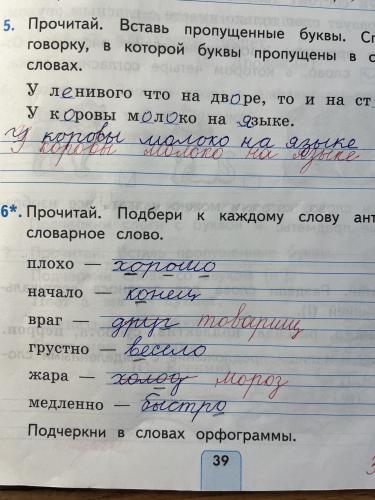 5. Прочитай. Вставь пропущенные буквы. Сп
говорку, в которой буквы пропущены в с
словах.
У ленивого что на дворе, то и на ст
У коровы молоко на языке.
У коровы молоко на языке
У коровы молоко на языке
6*. Прочитай. Подбери к каждому слову ант
словарное слово.
плохо — хорошо
начало — конец
враг — друг товарищ
грустно — весело
жара — холод мороз
медленно — быстро
Подчеркни в словах орфограммы.
39